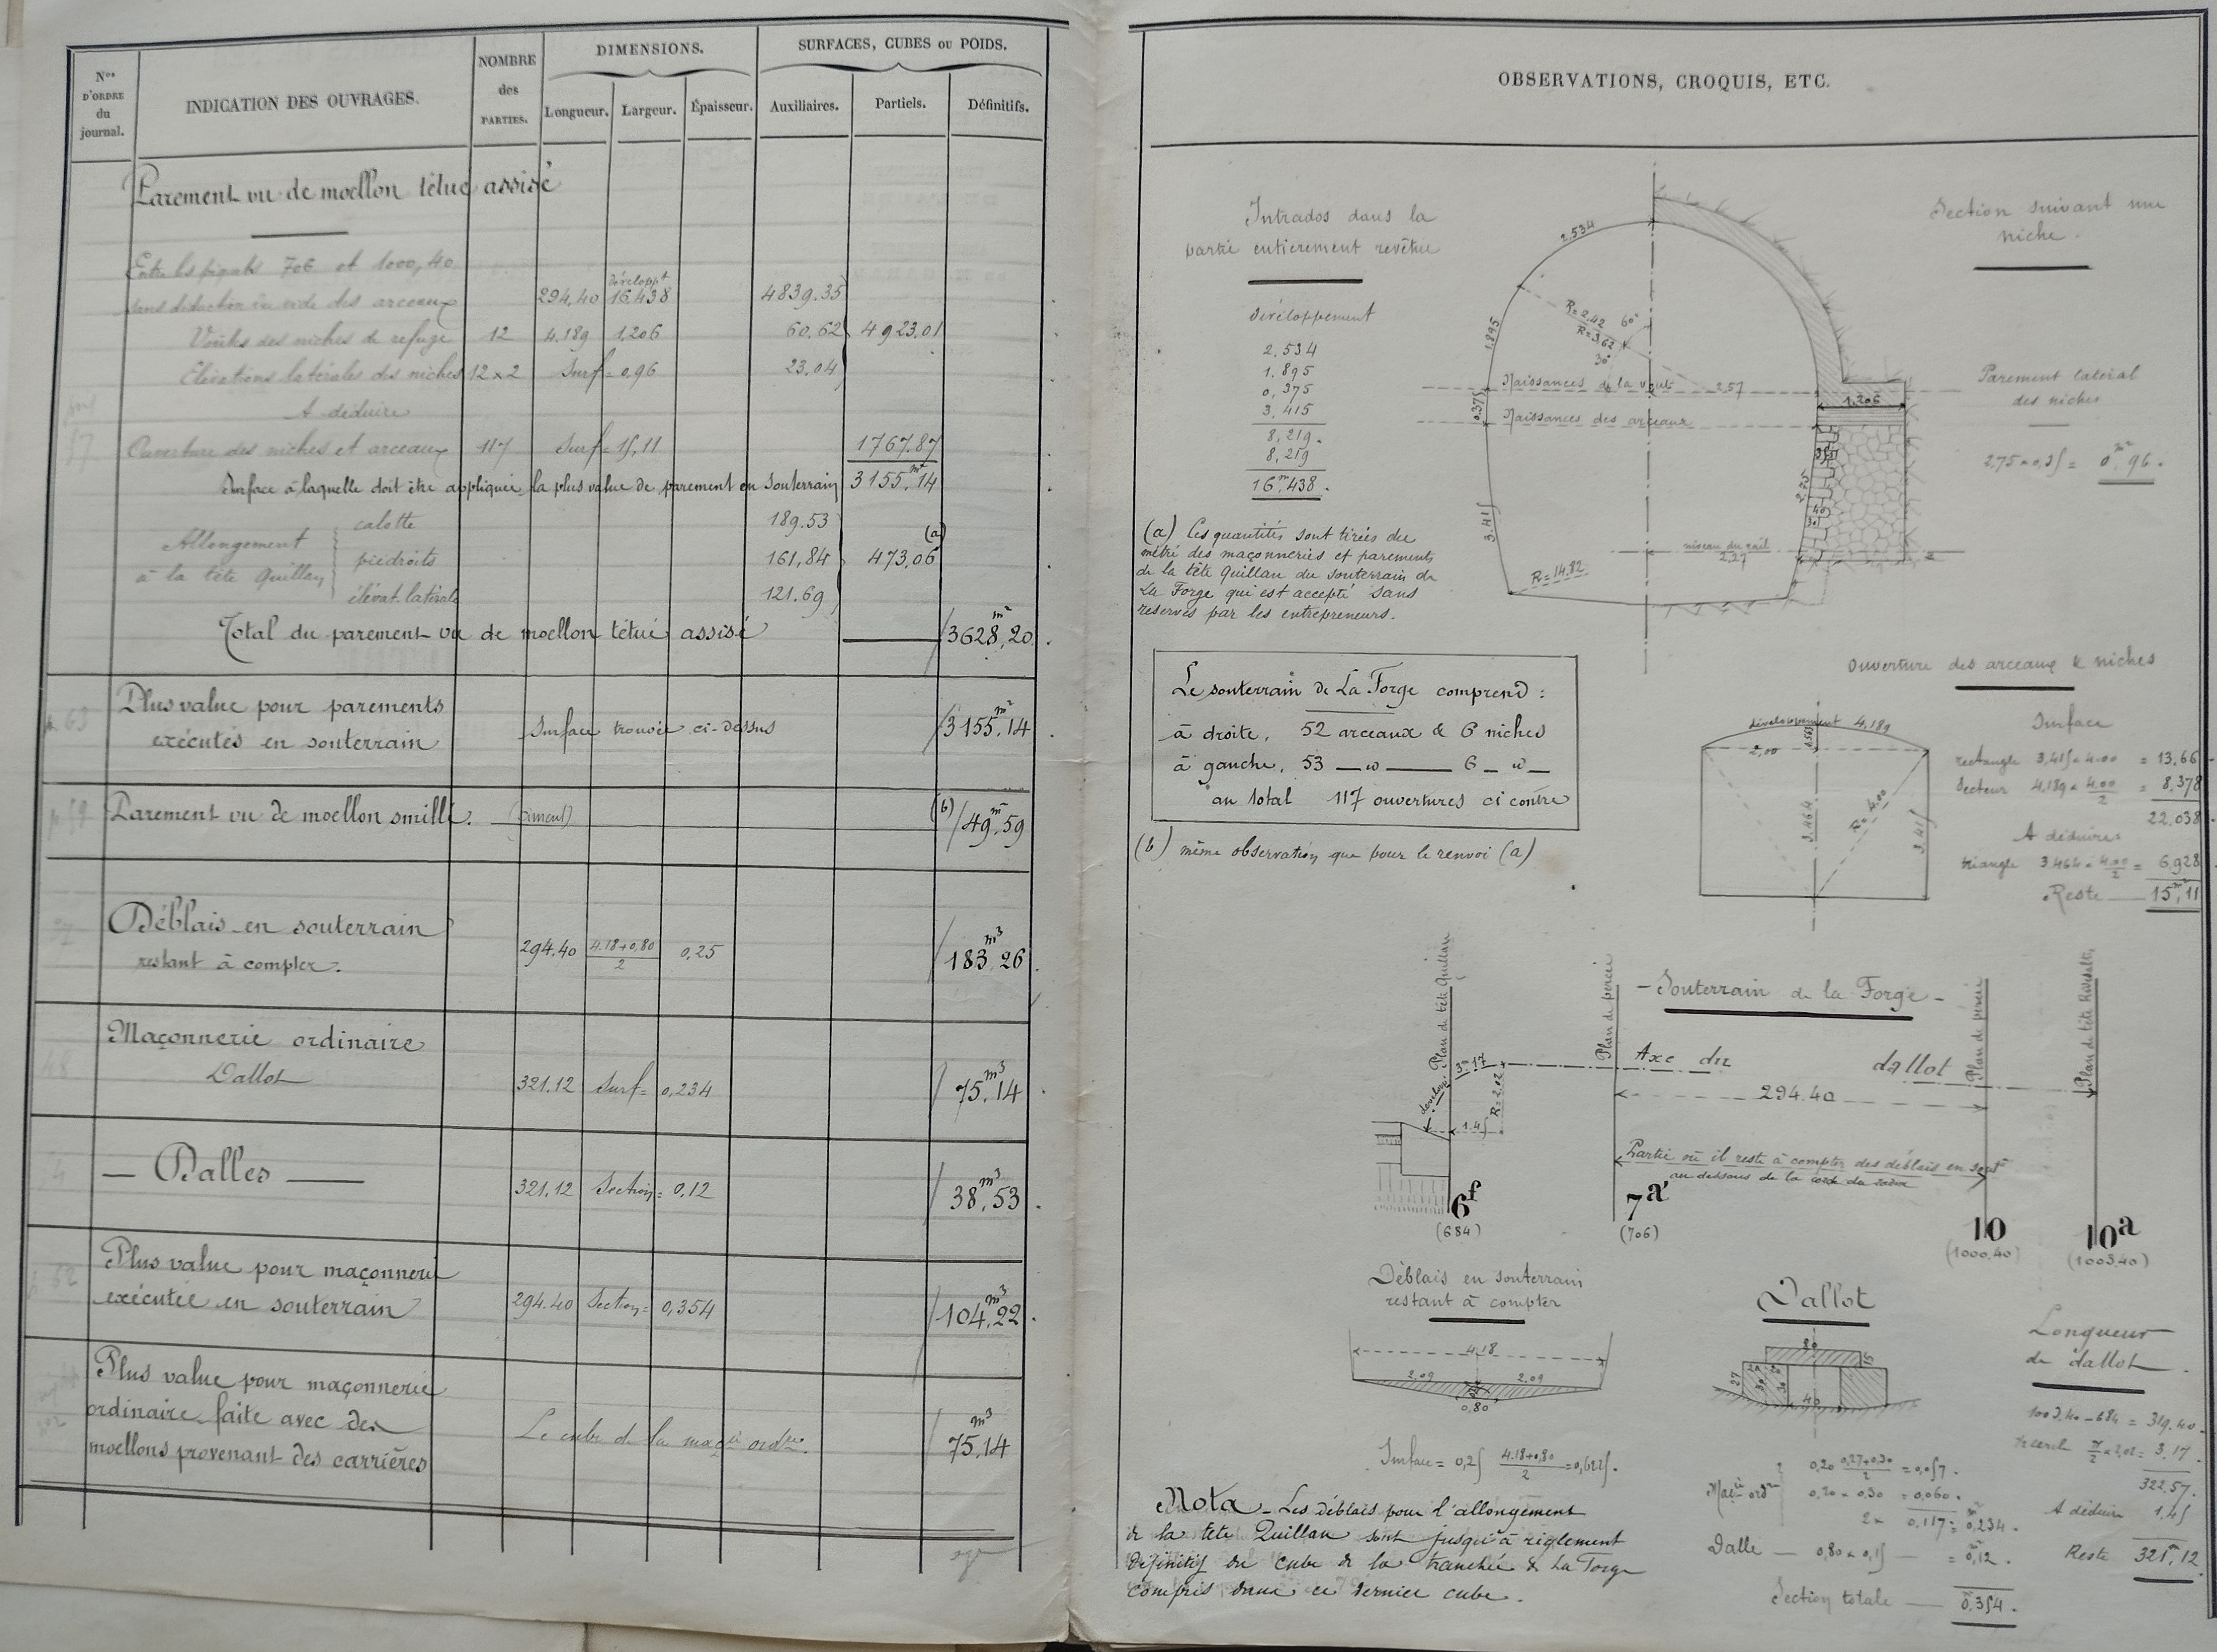 Nos D'ORDRE du journal.
INDICATION DES OUVRAGES.
NOMBRE des PARTIES.
DIMENSIONS.
Longueur. Largeur. Épaisseur.
SURFACES, CUBES ou POIDS.
Auxiliaires. Partiels. Définitifs.
Parement vu de moellon têtué assisé
Entre les piquets 706 et 1000,40
sans déduction du vide des arceaux 294,40 développt 16,438 4839.35
Voûtes des niches de refuge 12 4,189 1,206 60,62 4923,01
Elévations latérales des niches 12 x 2 Surf = 0,96 23,04
A déduire
57 Ouverture des niches et arceaux 117 Surf = 15,11 1767.87
Surface à laquelle doit être appliquée la plus value de parement en souterrain 3155,14 m2
Allongement à la tête Quillan
calotte 189.53
piedroits 161,84 473,06 (a)
élévat. latérale 121.69
Total du parement vu de moellon têtué assisé 3628,20 m2
p. 63 Plus value pour parements
exécutés en souterrain Surface trouvée ci-dessus 3155,14 m2
p. 59 Parement vu de moellon smillé. (ciment) (b) 49,59 m2
Déblais en souterrain
restant à compter. 294.40 4.18+0,80 / 2 0,25 183,26 m3
Maçonnerie ordinaire
48 Dallot 321.12 Surf = 0,234 75,14 m3
— Dalles — 321.12 Section = 0,12 38,53 m3
62 Plus value pour maçonnerie
exécutée en souterrain 294.40 Section = 0,354 104,22 m3
Plus value pour maçonnerie
ordinaire faite avec des
moellons provenant des carrières Le cube de la maçie ordre. 75,14 m3
OBSERVATIONS, CROQUIS, ETC.
Intrados dans la
partie entièrement revêtue
Développement
2,534
1,895
0,375
3,415
8,219.
8,219
16m,438.
(a) Ces quantités sont tirées du
métré des maçonneries et parements
de la tête Quillan du souterrain de
La Forge qui est accepté sans
réserves par les entrepreneurs.
2.534
1.895
0.375
3.415
R=2,42
R=3,62
60°
30°
Naissances de la voûte 2,57
Naissances des arceaux
niveau du rail
2,37
R=14,82
1,206
35
2,75
40
30
Section suivant une
niche.
Parement latéral
des niches
2,75 x 0,35 = 0m2,96.
Le souterrain de La Forge comprend :
à droite, 52 arceaux & 6 niches
à gauche, 53 — d° — 6 — d° —
au total 117 ouvertures ci contre
(b) même observation que pour le renvoi (a)
Ouverture des arceaux & niches
développement 4,189
2,00
3.464
R=4.00
3,415
Surface
rectangle 3,415 x 4.00 = 13,66
Secteur 4.189 x 4,00/2 = 8,378
22,038
A déduire
triangle 3.464 x 4,00/2 = 6,928
Reste — 15m2,11
— Souterrain de la Forge —
Plan de tête Quillan
Plan de percée
Plan de percée
Plan de tête Rivesaltes
Axe du dallot
3m17
dévelopt
R=2.02
1.45
294.40
Partie où il reste à compter des déblais en soutn
au dessous de la
6f
(684)
7a'
(706)
10
(1000,40)
10a
(1003.40)
Déblais en souterrain
restant à compter
4,18
2,09 2,09
0,80
Surface = 0,25 4.18+0,80 / 2 = 0,6225.
Dallot
80
15
20 20
27 30 30
40
Maçie ordre 0,20 0,27+0,30 / 2 = 0,057.
0,20 x 0,30 = 0,060.
2 x 0,117 = 0,234.
Dalle — 0,80 x 0,15 — = 0,12.
Section totale — 0,354.
Longueur
du dallot
1003,40 - 684 = 319,40
¼ cercle π/2 x 2,02 = 3,17.
322,57.
A déduire 1,45
Reste 321m,12
Nota — Les déblais pour l'allongement
de la tête Quillan sont jusqu'à règlement
définitif du cube de la tranchée de La Forge
compris dans ce dernier cube.